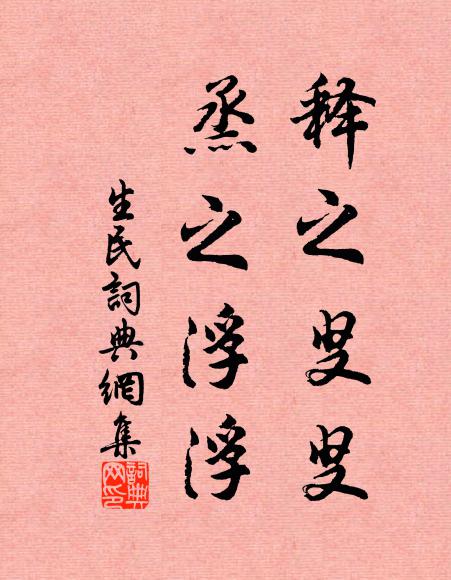 释之叟叟
烝之浮浮
生民詞典網集
詞典网印